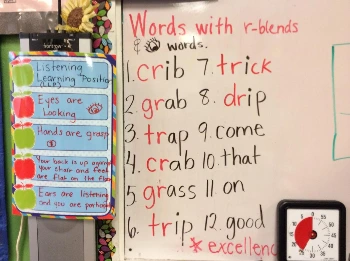 Listening
Learning Position
(LLP)
Eyes are
Looking
Hands are grasp
Your back is up against
your chair and feet
are flat on the floor
Ears are listening
and you are
Words with r-blends
& words.
1. crib 7. trick
2. grab 8. drip
3. trap 9. come
4. crab 10. that
5. grass 11 on
6. trip 12. good
* excellenc